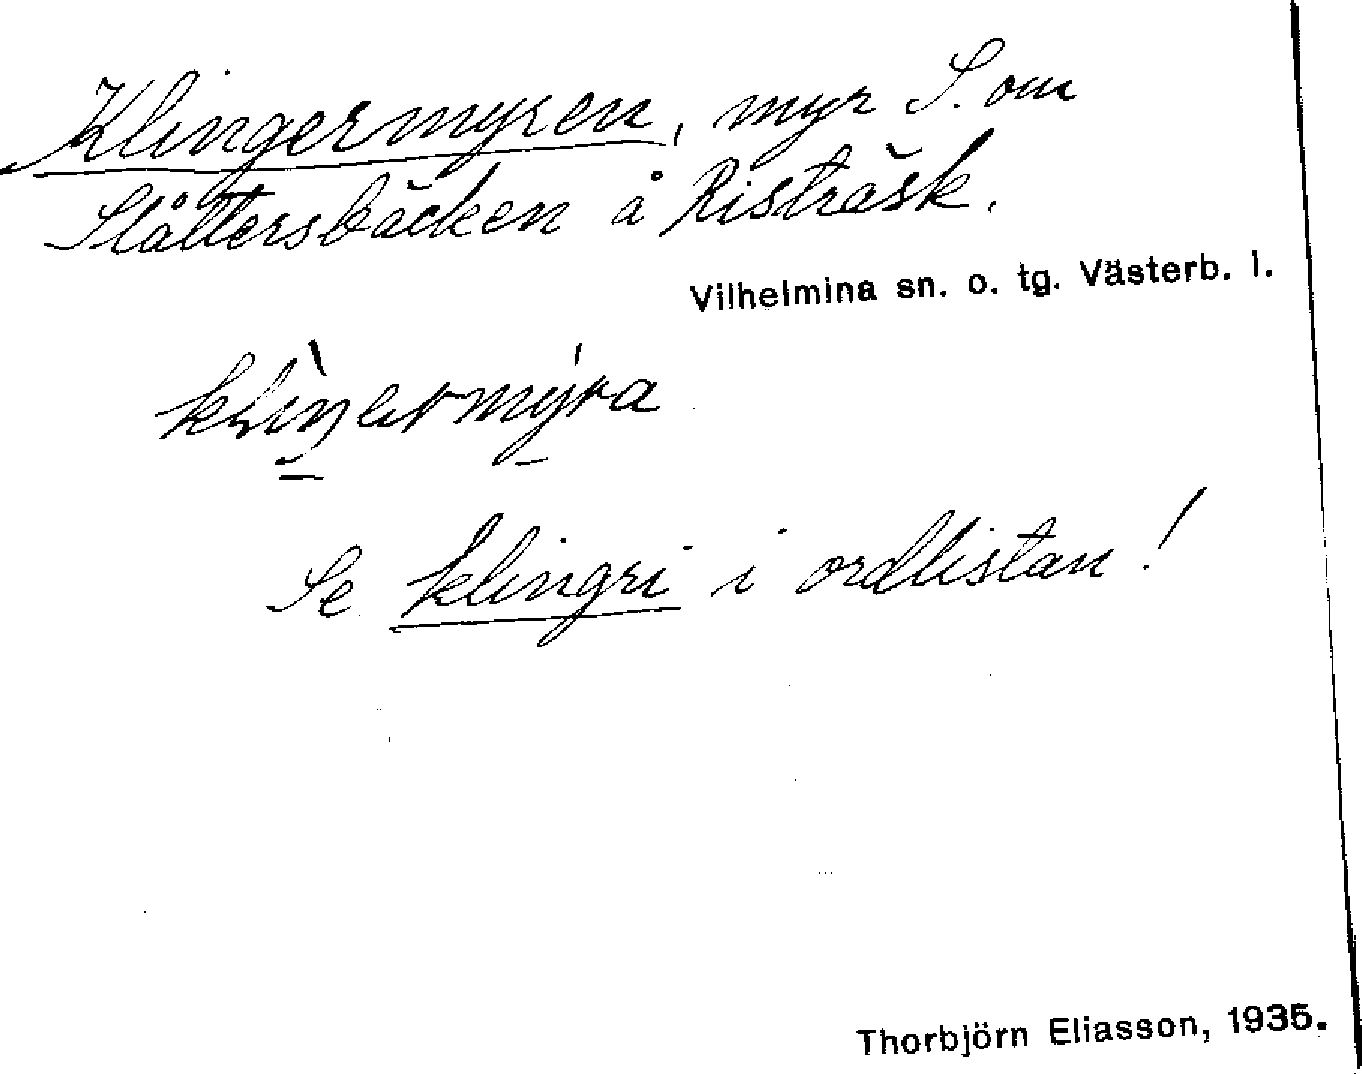 Klingermyren, myr S. om
Slåttersbäcken å Risträsk.
Vilhelmina sn. o. tg. Västerb. l.
klìŋermy̍ra
Se klingri i ordlistan!
Thorbjörn Eliasson, 1935.